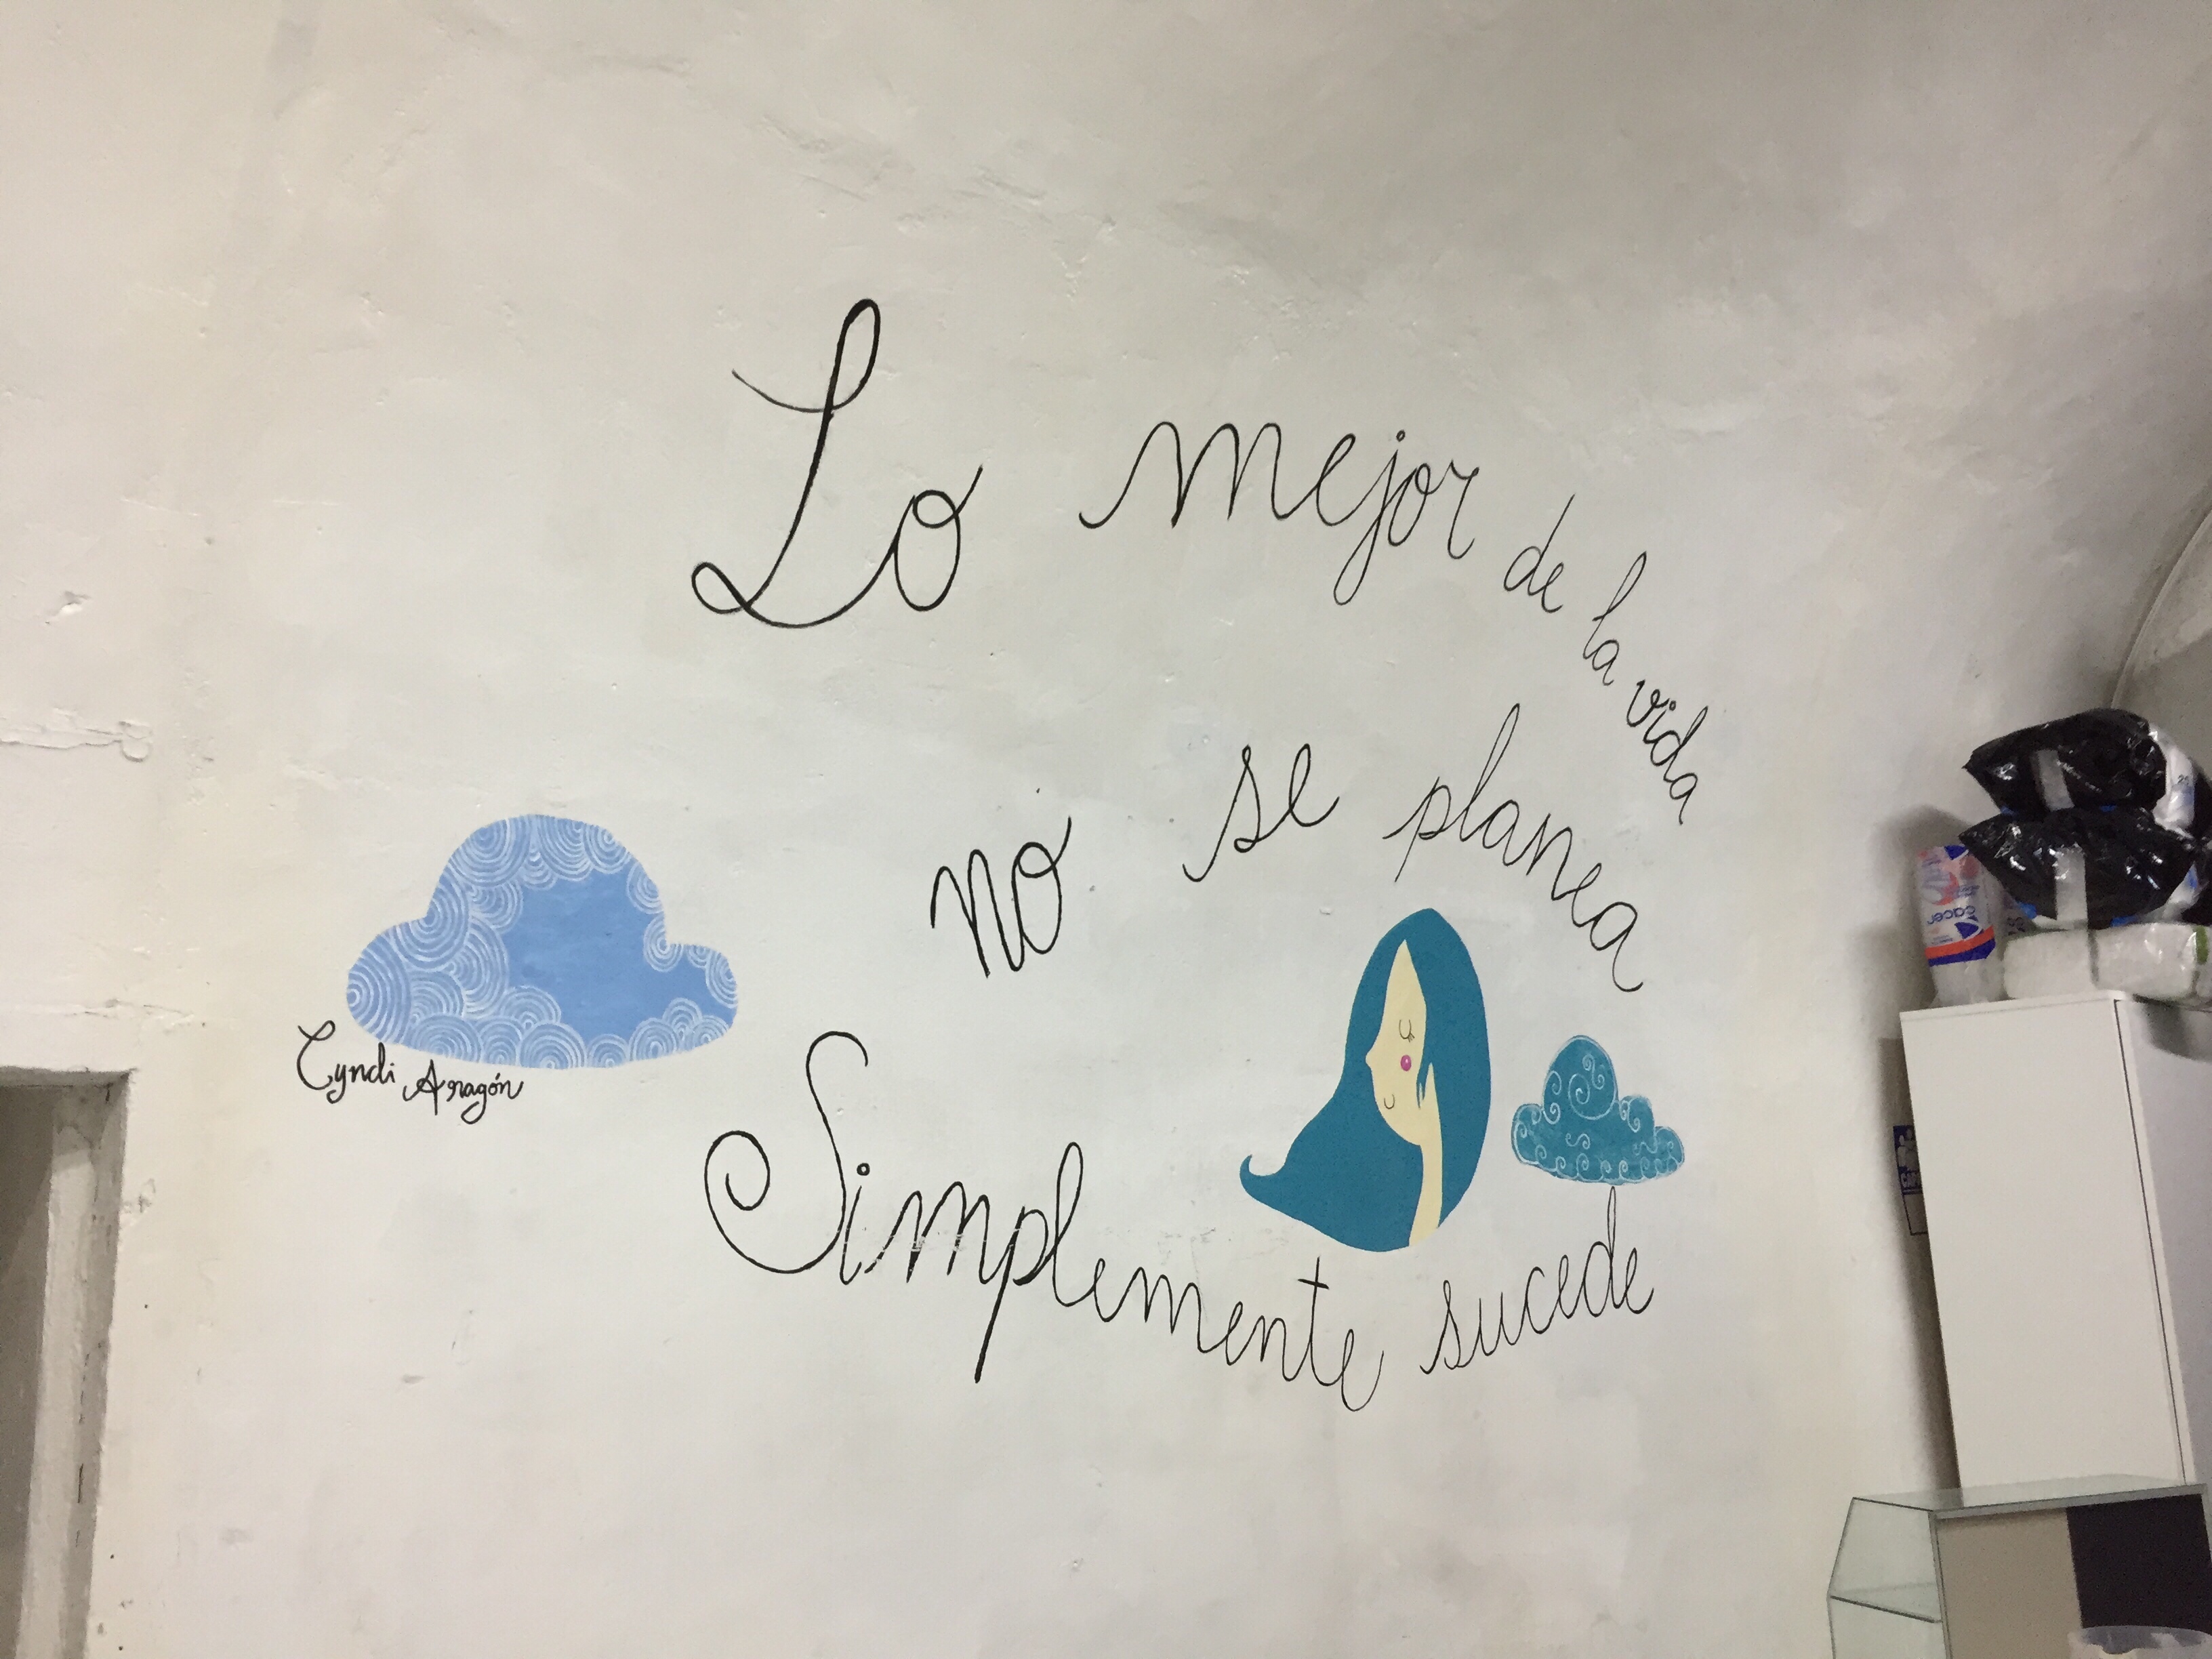 Lo mejor de la vida
no se planea
Simplemente sucede
Cyndi Aragón